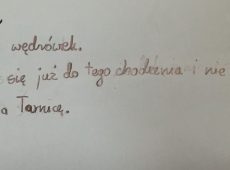 wędrówek.
się już do tego chodzenia i nie
a Tarnicę.